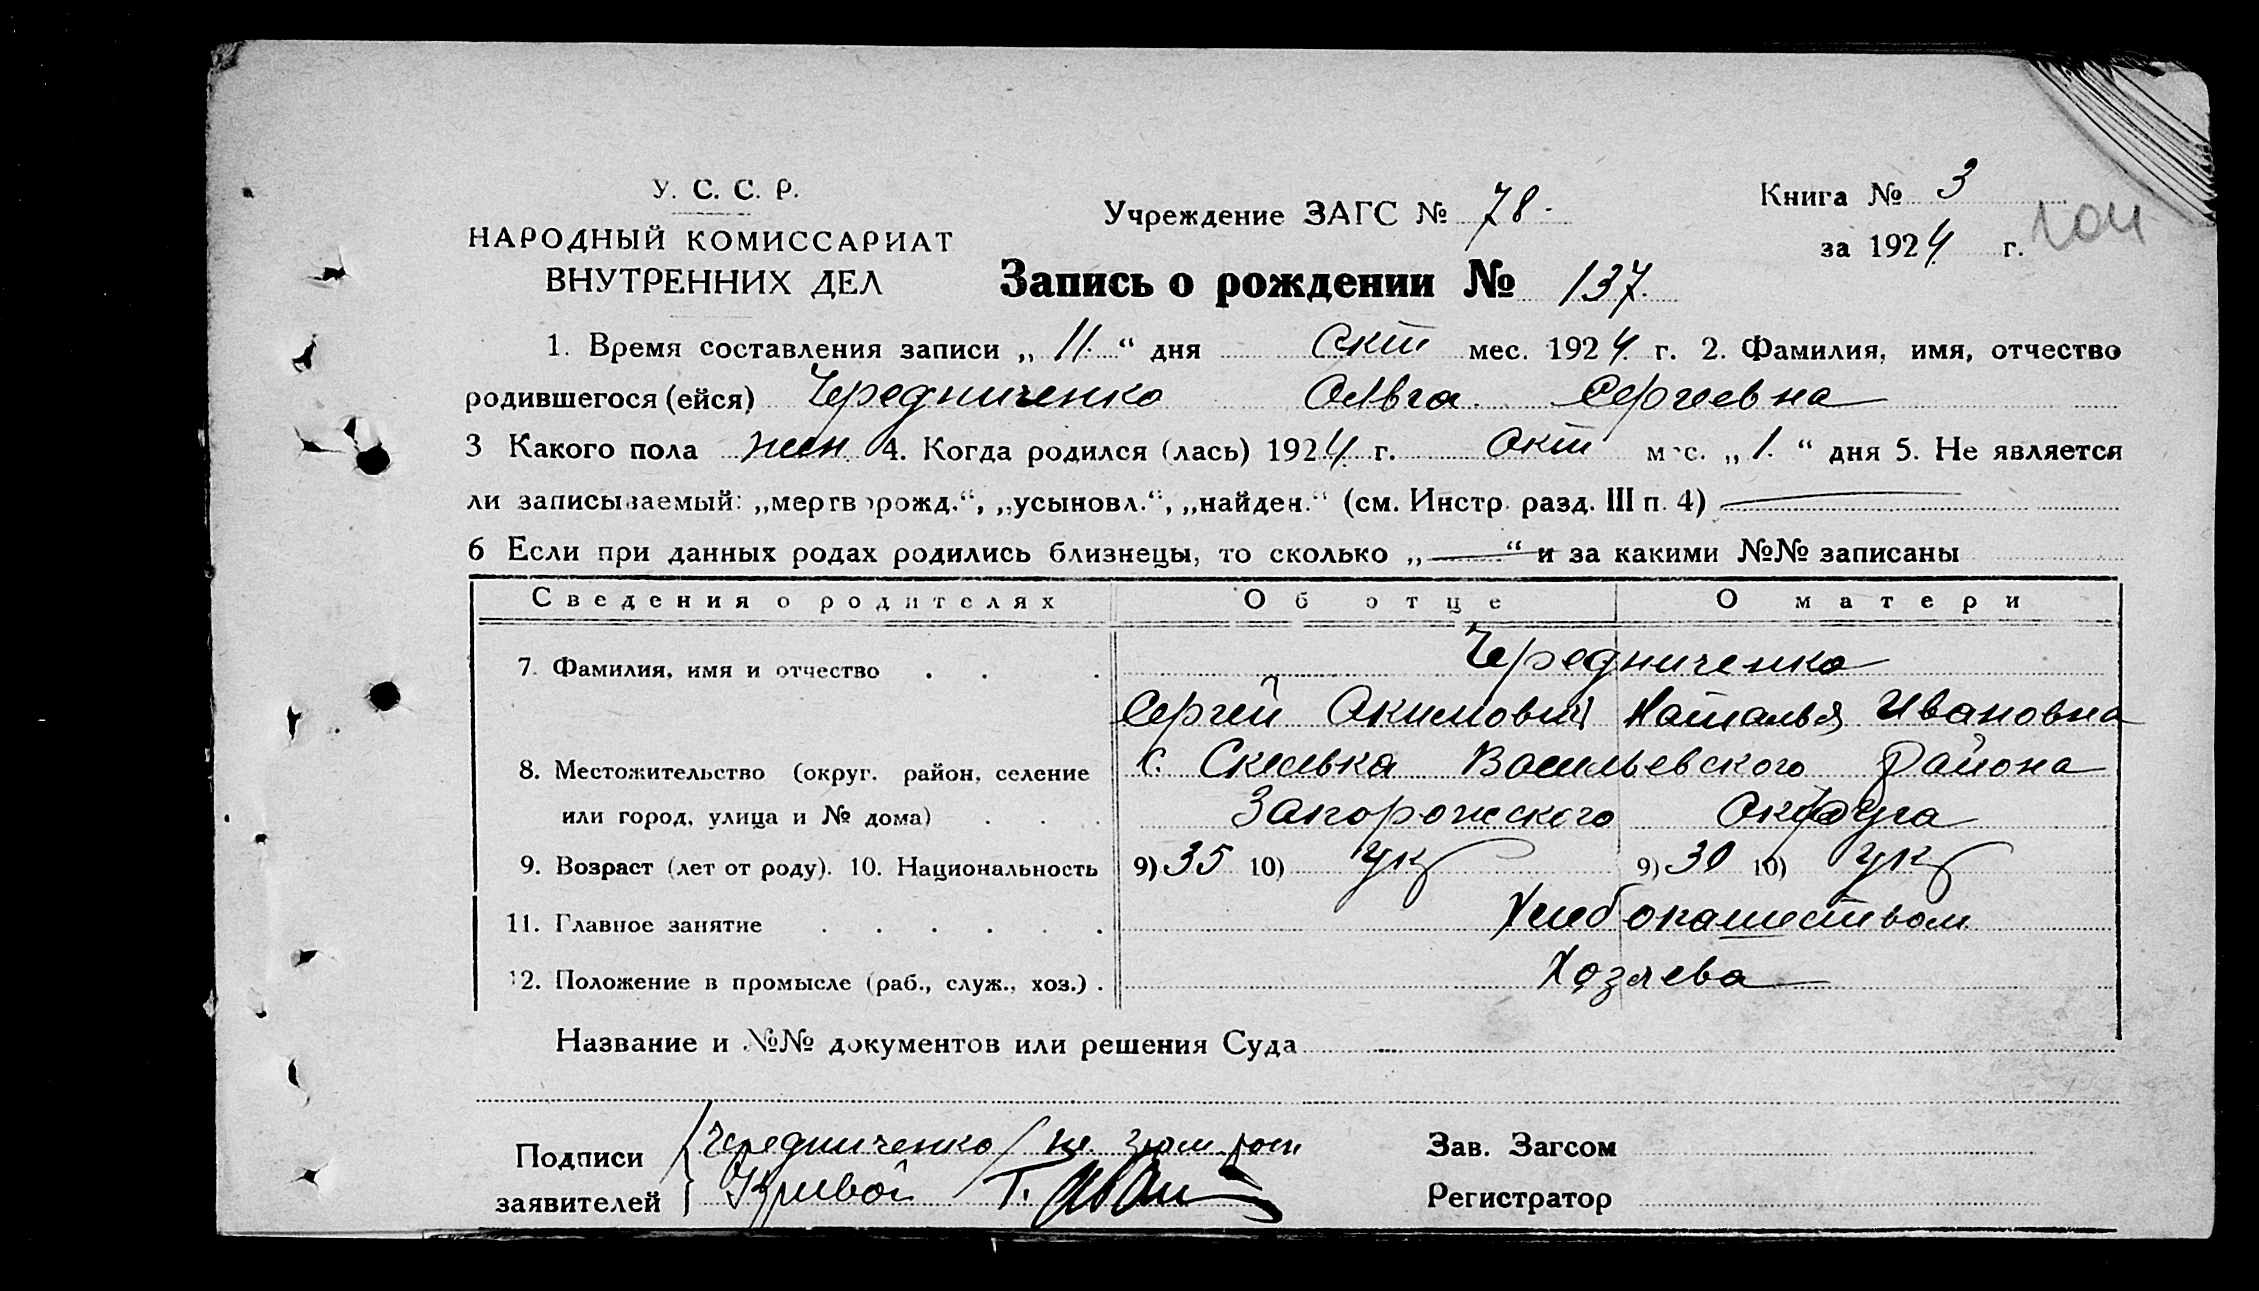 У. С. С. Р.
НАРОДНЫЙ КОМИССАРИАТ
ВНУТРЕННИХ ДЕЛ
Учреждение ЗАГС № 78.
Книга № 3
за 1924 г.
Запись о рождении № 137.
1. Время составления записи „ 11. “ дня Окт мес. 1924 г. 2. Фамилия, имя, отчество
родившегося (ейся) Чередниченко Ольга Сергеевна
3 Какого пола жен. 4. Когда родился (лась) 1924 г. Окт мес. „ 1. “ дня 5. Не является
ли записываемый: „мертворожд.“, „усыновл.“, „найден.“ (см. Инстр. разд. III п. 4)
6 Если при данных родах родились близнецы, то сколько „ “ и за какими №№ записаны
Сведения о родителях Об отце О матери
7. Фамилия, имя и отчество . . . Чередниченко
Сергей Акимович Наталья Ивановна
8. Местожительство (округ. район, селение с. Скелька Васильевского района
или город, улица и № дома) . . . Запорожского Округа
9. Возраст (лет от роду). 10. Национальность 9) 35 10) укр 9) 30 10) укр
11. Главное занятие . . . . . . Хлебопашеством
12. Положение в промысле (раб., служ., хоз.) . Хозяева
Название и №№ документов или решения Суда
Подписи Чередниченко
заявителей Кривой
Зав. Загсом
Регистратор